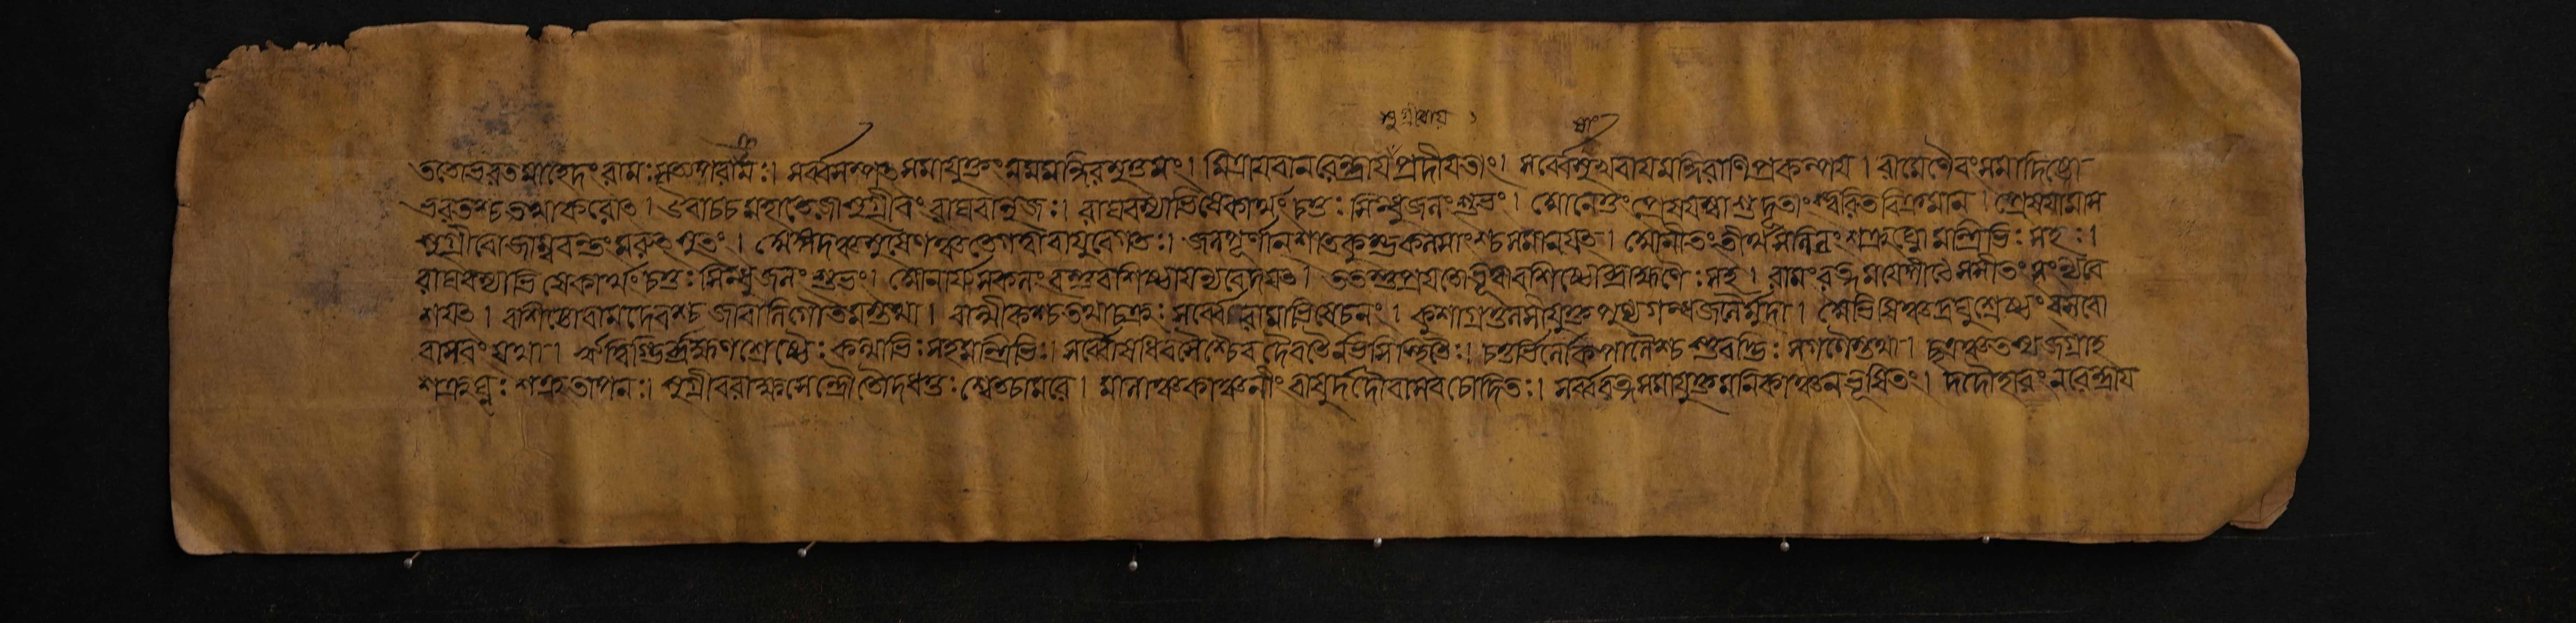 সুগ্রীবায়
ততো ভরতমাহেদং রামঃ । সর্ব্বসম্পৎ সমাযুক্তং মম মন্দিরমুত্তমং । মিত্রায বানরেন্দ্রায প্রদীযতাং । সর্ব্বে সুখবাসায মন্দিরাণি প্রকল্পয । রামেণৈবং সমাদিষ্টো
ভরতশ্চ তথাকরোৎ । উবাচ চ মহাতেজা সুগ্রীবং রাঘবানুজঃ । রাঘবস্যাভিষেকার্থং চতুঃ সিন্ধুজলং শুভং । আনেতুং প্রেষযস্বাশু দূতাংস্ত্বরিতবিক্রমান । প্রেষযামাস
সুগ্রীবো জাম্ববন্তং মরুৎ সুতং । অঙ্গদঞ্চ সুষেণঞ্চ তে গত্বা বাযুবেগতঃ । জলপূর্ণান শাতকুম্ভকলসাংশ্চ সমানযৎ । আনীতং তীর্থসলিলং শত্রুঘ্নো মন্ত্রিভিঃ সহঃ ।
রাঘবস্যাভিষেকার্থং চতুঃ সিন্ধুজলং শুভং । বশিষ্ঠায ন্যবেদযৎ । ততস্তু প্রযতো বৃদ্ধো বশিষ্ঠো ব্রাহ্মণৈঃ সহ । রামং রত্নমযে পীঠে সসীতং সংন্যবে
শযৎ । বশিষ্ঠো বামদেবশ্চ জাবালির্গৌতমস্তথা । বাল্মীকশ্চ তথা চক্রুঃ সর্ব্বে রামাভিষেচনং । কুশাগ্রতুলসীযুক্ত পুণ্যগন্ধজলৈর্মুদা । অভিষিঞ্চন রঘুশ্রেষ্ঠং বসবো
বাসবং যথা । ঋত্বিগ্ভির্ব্রাহ্মণশ্রেষ্ঠৈঃ কন্যাভিঃ সহ মন্ত্রিভিঃ । সর্ব্বৌষধিরসৈশ্চৈব দৈবতৈর্নভসি স্থিতৈঃ । চতুর্ভির্লোকপালৈশ্চ স্তুবদ্ভিঃ সগণৈস্তথা । ছত্রঞ্চ তস্য জগ্রাহ
শত্রুঘ্নঃ শত্রুতাপনঃ । সুগ্রীবরাক্ষসেন্দ্রৌ তৌ দধতুঃ শ্বেতচামরে । মালাঞ্চ কাঞ্চনীং বাযুর্দদৌ বাসবচোদিতঃ । সর্ব্বরত্নসমাযুক্তং মনিকাঞ্চনভূষিতং । দদৌ হারং নরেন্দ্রায